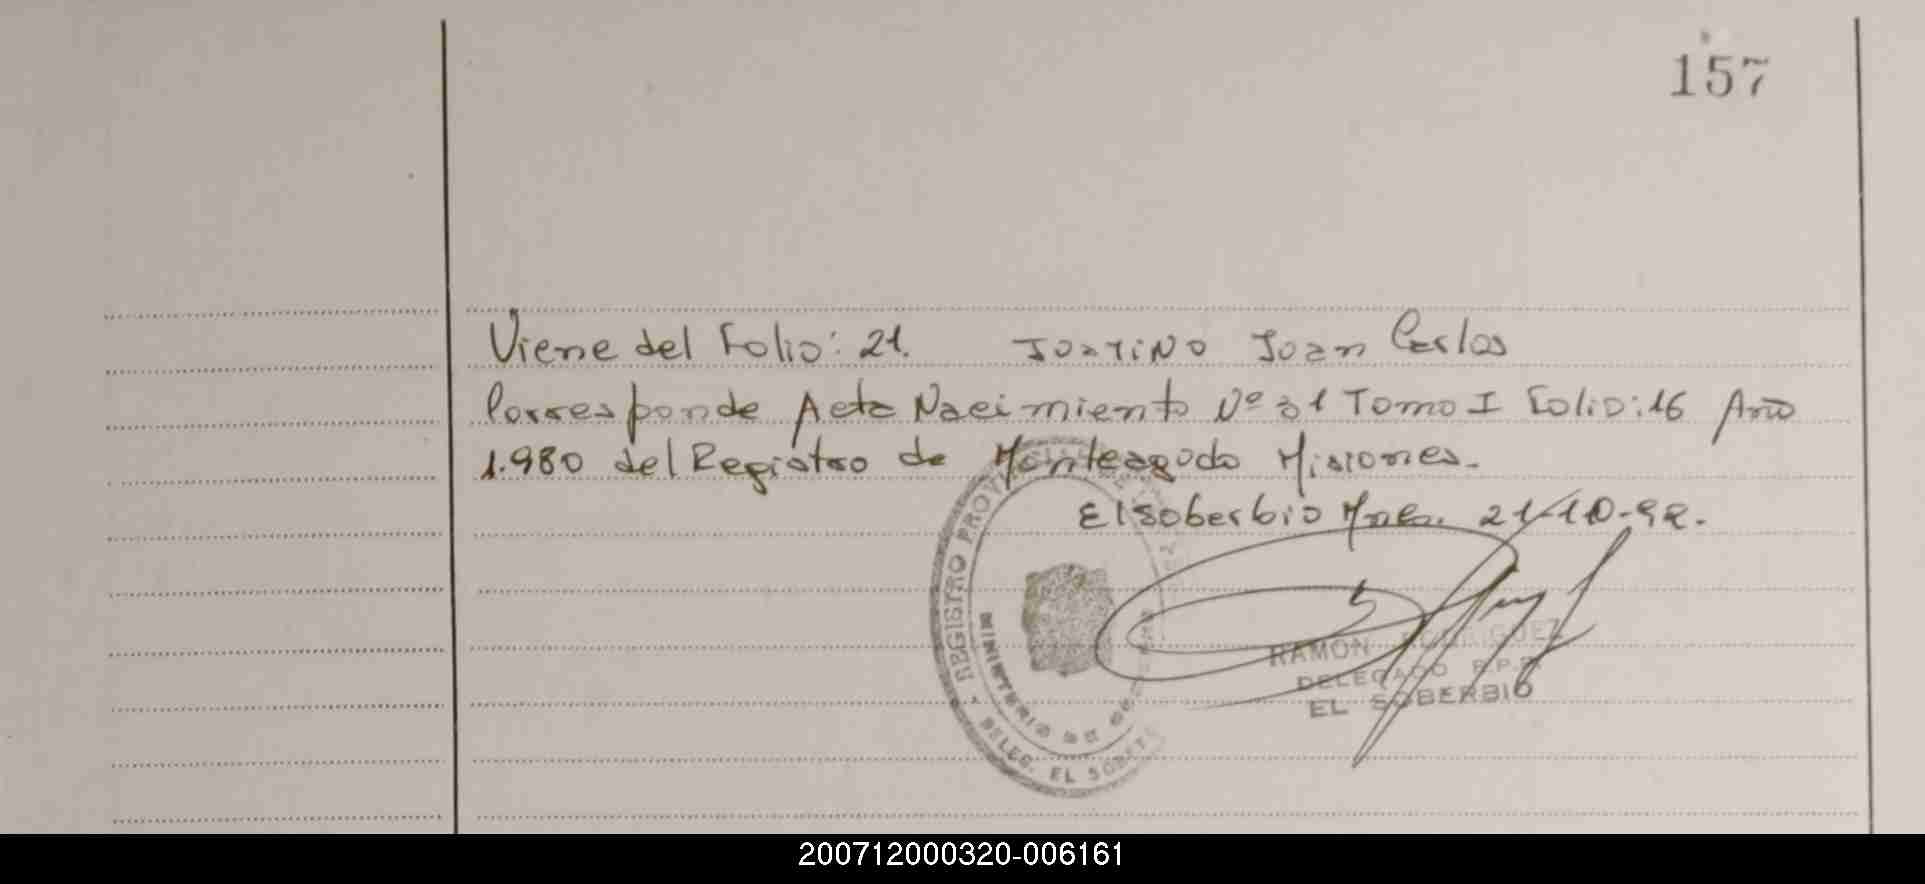 157
Viene del Folio: 21. Juan Carlos
Corresponde Acta Nacimiento Nº 31 Tomo I Folio: 16 Año
1.980 del Registro de Monteagudo Misiones.
El Soberbio Mnes. 21-10-92.
REGISTRO PROV
MINISTERIO DE
DELEG. EL SOBE
RAMON RODRIGUEZ
DELEGADO R.P.P.
EL SOBERBIO
200712000320-006161